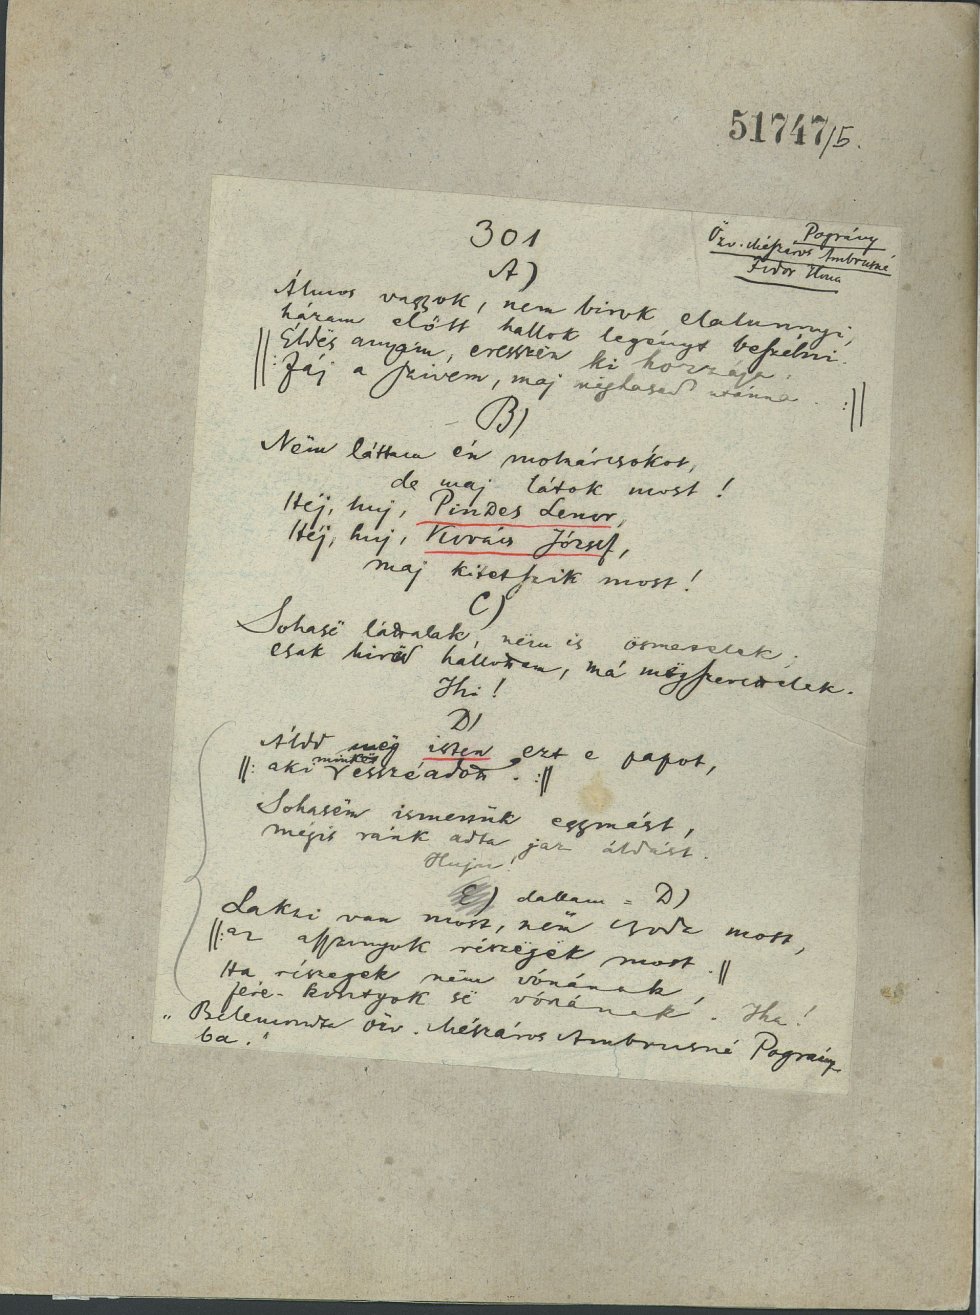 51747/5.
301
Pográny
Özv. Mészáros Ambrusné
Fidor Ilona
A)
Álmos vagyok, nem birok elalunnyi,
házam előtt hallok legényt beszélni.
||: Édës anyám, eresszën ki hozzája.
Fáj a szivem, maj mëghasad utánna. :||
B)
Nëm láttam én molnárcsókot,
de maj látok most!
Héj, huj, Pindes Lenor,
Héj, huj, Kovács József,
maj kitetszik most!
C)
Sohasë láttalak, nëm is ösmertelek;
csak hirëd hallottam, má mëgszerettelek.
Ihi!
D)
Áldd mëg isten ezt e papot,
||: aki minket esszéadott. :||
Sohasëm ismertük egymást,
mégis ránk adta jaz áldást.
Huju!
E) dallam = D)
Lakzi van most, nëm csoda most,
||: az asszonyok részëgëk most :||
Ha részegek nëm vónának,
fére-kontyok së vónának. Iha!
„Bélemondta özv. Mészáros Ambrusné Pográny-
ba."